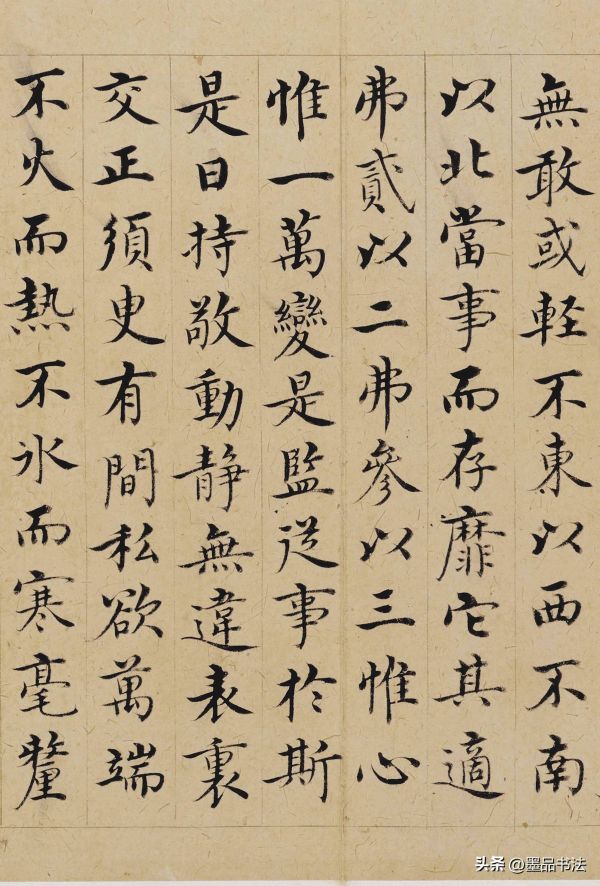 無敢或軽不東以西不南
以北當事而存靡它其適
弗貳以二弗參以三惟心
惟一萬變是監從事於斯
是曰持敬動靜無違表裏
交正須臾有間私欲萬端
不火而熱不氷而寒毫釐
头条 @墨品书法